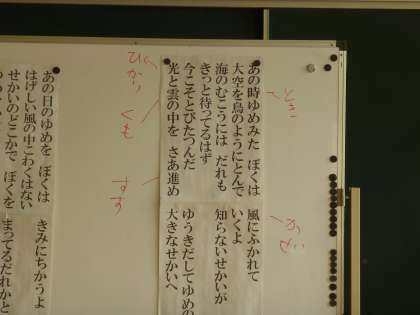 あの時ゆめみた ぼくは
大空を鳥のようにとんで
海のむこうには だれも
きっと待ってるはず
今こそとびたつんだ
光と雲の中を さあ進め
風にふかれて
いくよ
知らないせかいが
ゆうきだしてゆめの
大きなせかいへ
あの日のゆめを ぼくは
はげしい風の中こわくはない
せかいのどこかで ぼくを
きみにちかうよ
まってるだれかと
とき
かぜ
ひかり
くも
すす